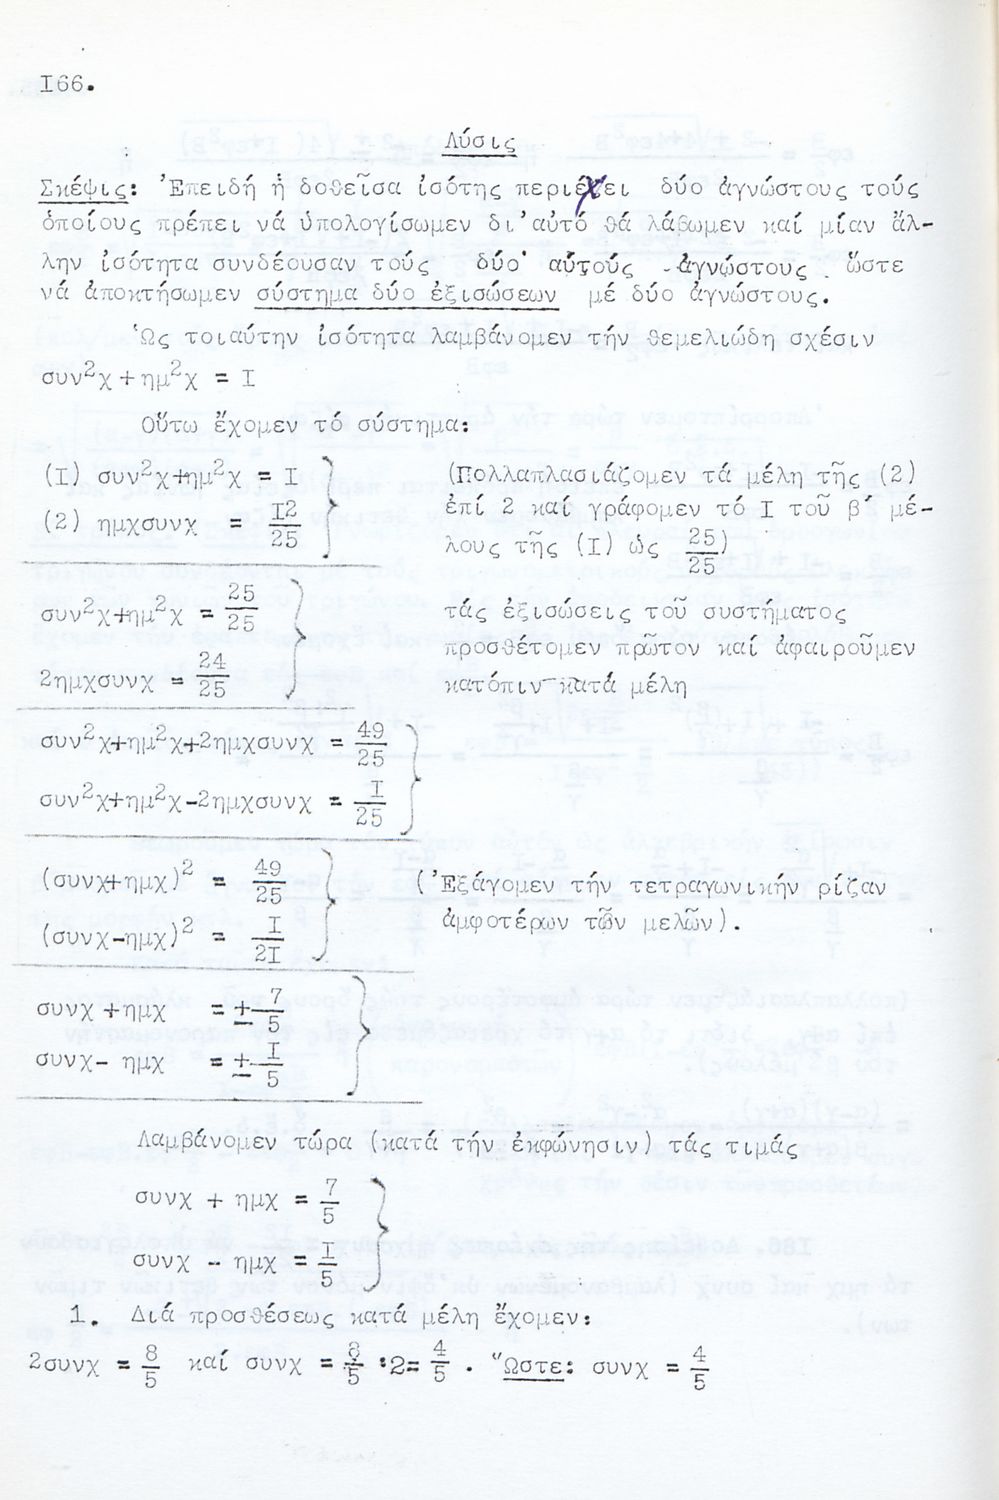 I66.
Λύσις
Σκέψις: Ἐπειδή ἡ δοθεῖσα ἰσότης περιέχει δύο ἀγνώστους τούς
ὁποίους πρέπει νά ὑπολογίσωμεν δι᾽αὐτό θά λάβωμεν καί μίαν ἄλ-
λην ἰσότητα συνδέουσαν τούς δύο αὐτούς ἀγνώστους ὥστε
νά ἀποκτήσωμεν σύστημα δύο ἐξισώσεων μέ δύο ἀγνώστους.
Ὡς τοιαύτην ἰσότητα λαμβάνομεν τήν θεμελιώδη σχέσιν
συν²χ + ημ²χ = I
Οὕτω ἔχομεν τό σύστημα:
(I) συν²χ+ημ²χ = I (Πολλαπλασιάζομεν τά μέλη τῆς (2)
(2) ημχσυνχ = I2/25 ἐπί 2 καί γράφομεν τό I τοῦ β΄ μέ-
λους τῆς (I) ὡς 25/25)
συν²χ+ημ²χ = 25/25 τάς ἐξισώσεις τοῦ συστήματος
προσθέτομεν πρῶτον καί ἀφαιροῦμεν
2ημχσυνχ = 24/25 κατόπιν κατά μέλη
συν²χ+ημ²χ+2ημχσυνχ = 49/25
συν²χ+ημ²χ-2ημχσυνχ = I/25
(συνχ+ημχ)² = 49/25 (Ἐξάγομεν τήν τετραγωνικήν ρίζαν
(συνχ-ημχ)² = I/2I ἀμφοτέρων τῶν μελῶν).
συνχ +ημχ = ± 7/5
συνχ- ημχ = ± I/5
Λαμβάνομεν τώρα (κατά τήν ἐκφώνησιν) τάς τιμάς
συνχ + ημχ = 7/5
συνχ - ημχ = I/5
1. Διά προσθέσεως κατά μέλη ἔχομεν:
2συνχ = 8/5 καί συνχ = 8/5 :2= 4/5 . Ὥστε: συνχ = 4/5